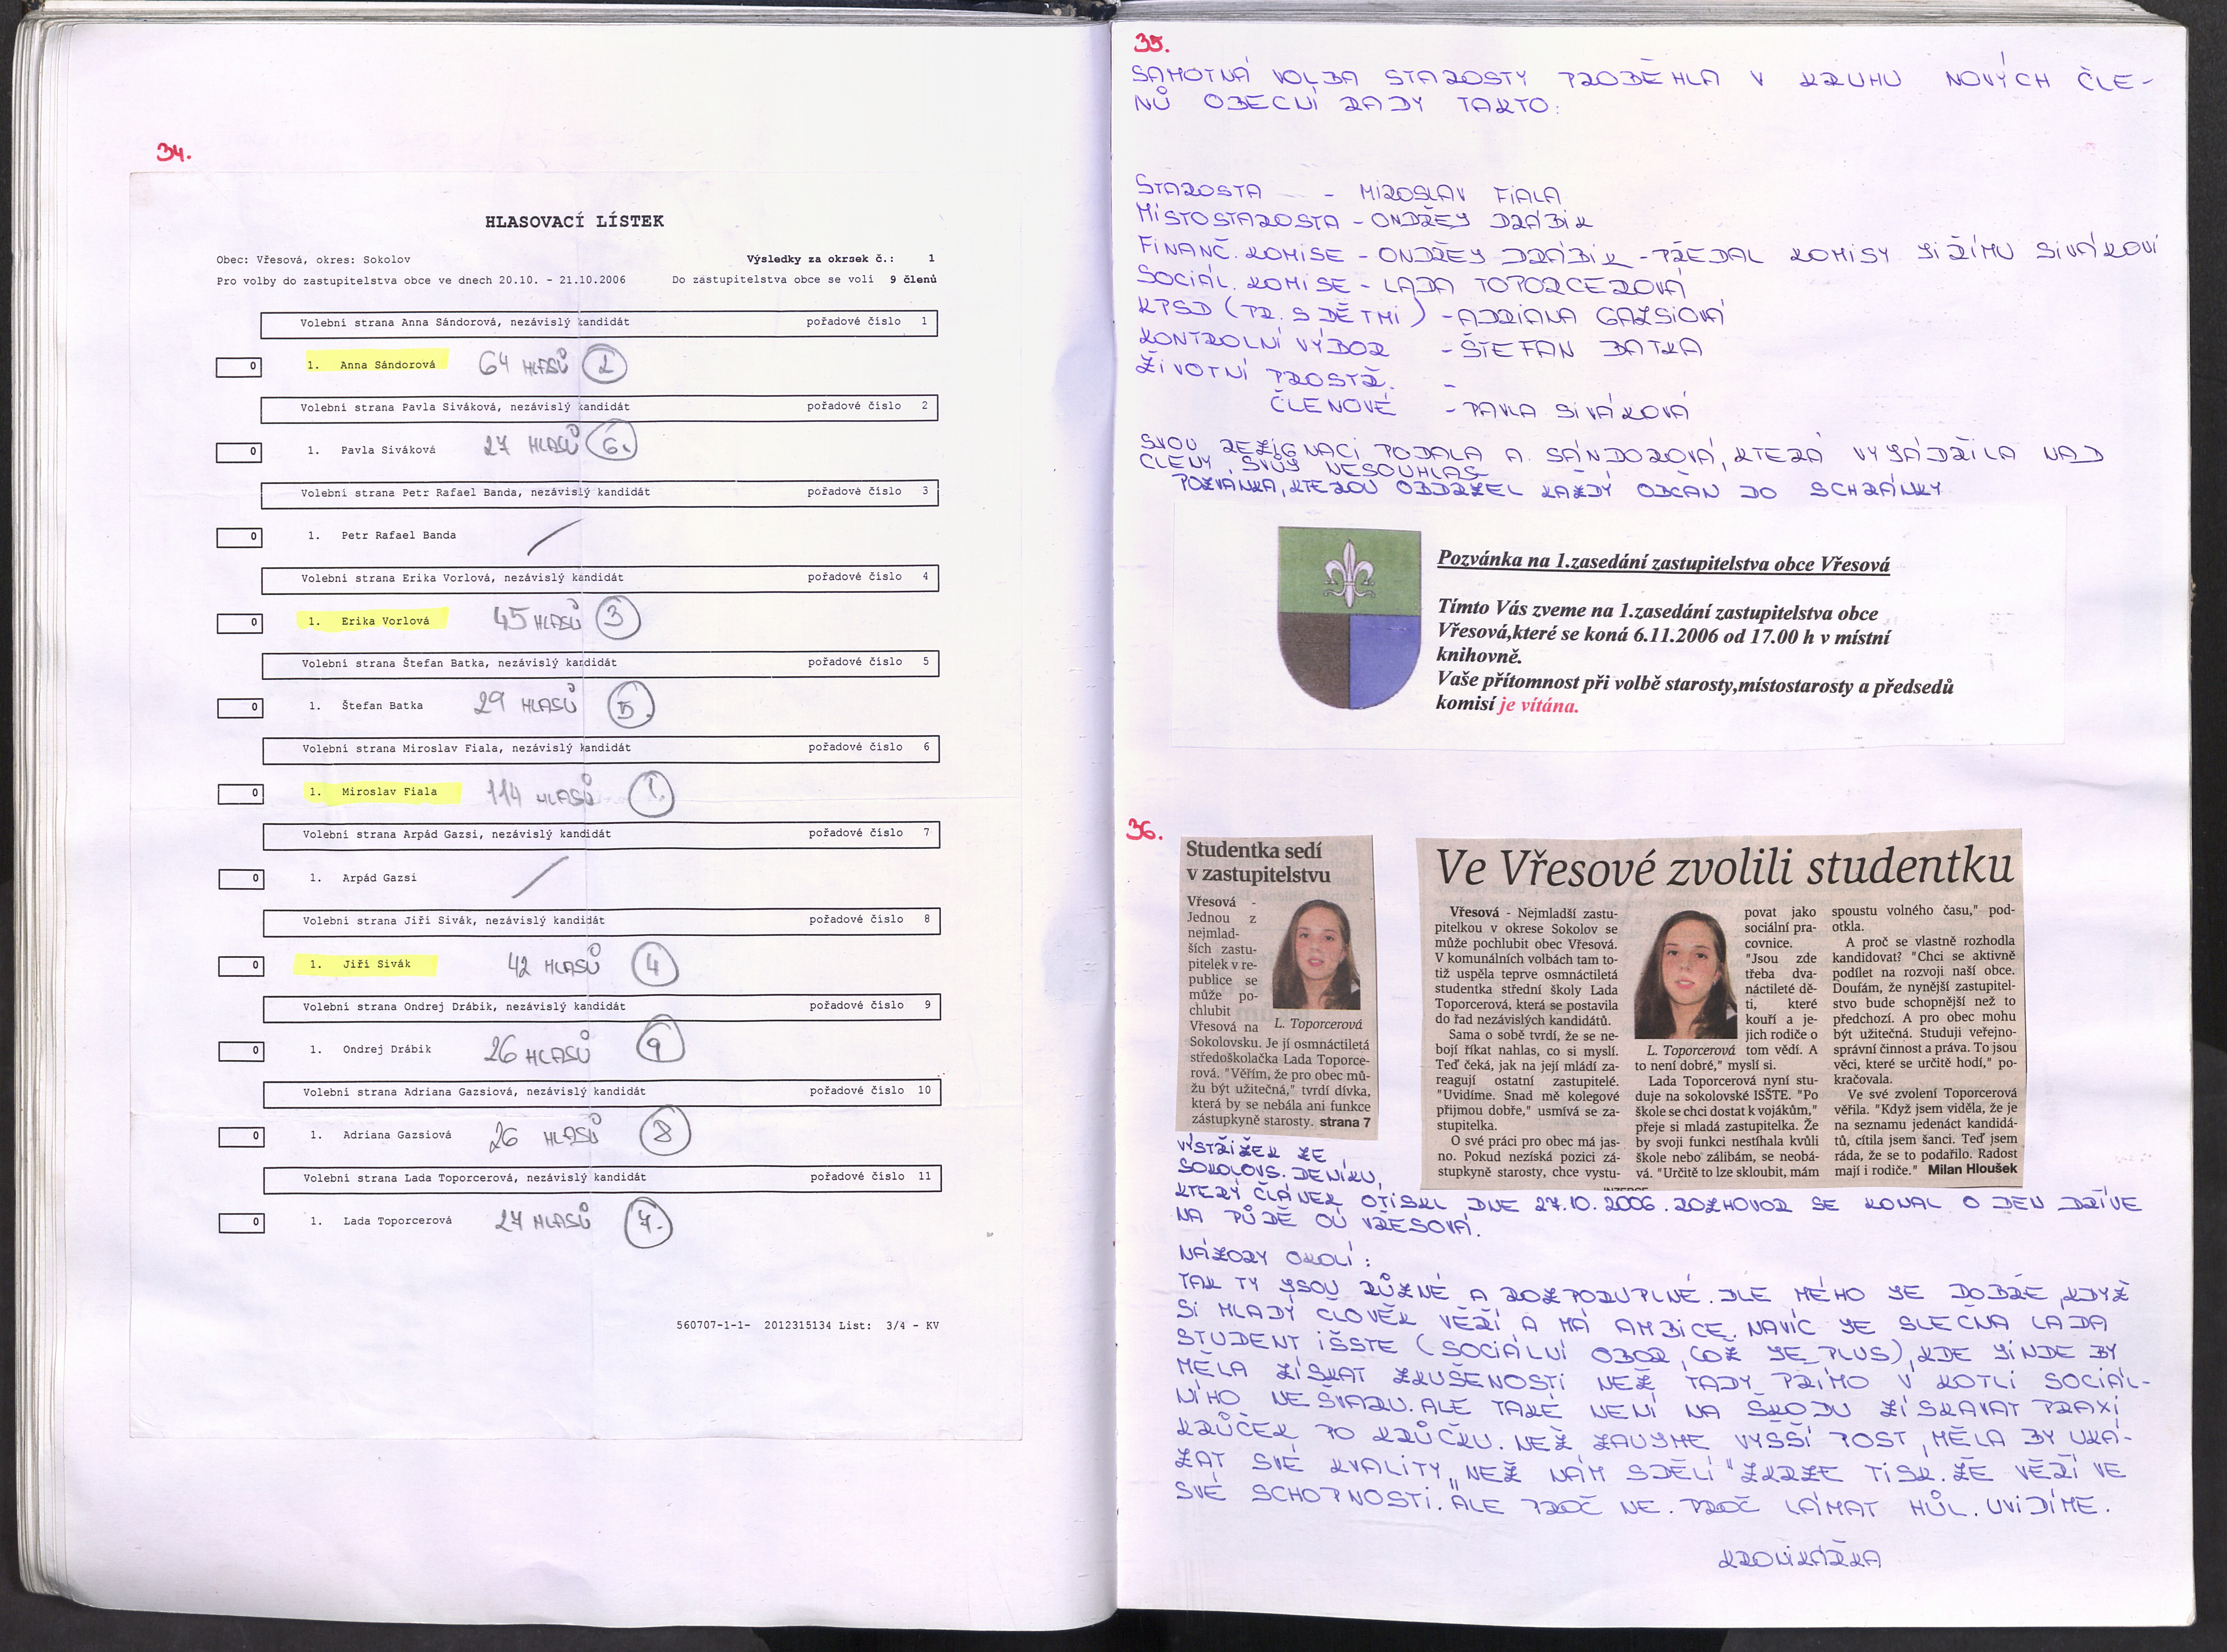 34.
HLASOVACÍ LÍSTEK
Obec: Vřesová, okres: Sokolov
Výsledky za okrsek č.: 1
Pro volby do zastupitelstva obce ve dnech 20.10. - 21.10.2006
Do zastupitelstva obce se volí 9 členů
Volební strana Anna Sándorová, nezávislý kandidát pořadové číslo 1
0 1. Anna Sándorová 64 HLASŮ 2
Volební strana Pavla Siváková, nezávislý kandidát pořadové číslo 2
0 1. Pavla Siváková 27 HLASŮ 6.
Volební strana Petr Rafael Banda, nezávislý kandidát pořadové číslo 3
0 1. Petr Rafael Banda
Volební strana Erika Vorlová, nezávislý kandidát pořadové číslo 4
0 1. Erika Vorlová 45 HLASŮ 3
Volební strana Štefan Batka, nezávislý kandidát pořadové číslo 5
0 1. Štefan Batka 29 HLASŮ 5.
Volební strana Miroslav Fiala, nezávislý kandidát pořadové číslo 6
0 1. Miroslav Fiala 114 HLASŮ 1.
Volební strana Arpád Gazsi, nezávislý kandidát pořadové číslo 7
0 1. Arpád Gazsi
Volební strana Jiří Sivák, nezávislý kandidát pořadové číslo 8
0 1. Jiří Sivák 42 HLASŮ 4
Volební strana Ondrej Drábik, nezávislý kandidát pořadové číslo 9
0 1. Ondrej Drábik 26 HLASŮ 9
Volební strana Adriana Gazsiová, nezávislý kandidát pořadové číslo 10
0 1. Adriana Gazsiová 26 HLASŮ 8
Volební strana Lada Toporcerová, nezávislý kandidát pořadové číslo 11
0 1. Lada Toporcerová 27 HLASŮ 7.
560707-1-1- 2012315134 List: 3/4 - KV
35.
SAMOTNÁ VOLBA STAROSTY PROBĚHLA V KRUHU NOVÝCH ČLE-
NŮ OBECNÍ RADY TAKTO:
STAROSTA - MIROSLAV FIALA
MÍSTOSTAROSTA - ONDŘEJ DRÁBIK
FINANČ. KOMISE - ONDŘEJ DRÁBIK - PŘEDAL KOMISY JIŘÍMU SIVÁKOVI
SOCIÁL. KOMISE - LADA TOPORCEROVÁ
KPSD (PR. S DĚTMI) - ADRIANA GAZSIOVÁ
KONTROLNÍ VÝBOR - ŠTEFAN BATKA
ŽIVOTNÍ PROSTŘ. -
ČLENOVÉ - PAVLA SIVÁKOVÁ
SVOU REZIGNACI PODALA A. SÁNDOROVÁ, KTERÁ VYJÁDŘILA NAD
ČLENY SVŮJ NESOUHLAS
POZVÁNKA, KTEROU OBDRŽEL KAŽDÝ OBČAN DO SCHRÁNKY
Pozvánka na 1.zasedání zastupitelstva obce Vřesová
Tímto Vás zveme na 1.zasedání zastupitelstva obce
Vřesová,které se koná 6.11.2006 od 17.00 h v místní
knihovně.
Vaše přítomnost při volbě starosty,místostarosty a předsedů
komisí je vítána.
36.
Studentka sedí
v zastupitelstvu
Vřesová -
Jednou z
nejmlad-
ších zastu-
pitelek v re-
publice se
může po-
chlubit
Vřesová na
L. Toporcerová
Sokolovsku. Je jí osmnáctiletá
středoškolačka Lada Toporce-
rová. "Věřím, že pro obec mů-
žu být užitečná," tvrdí dívka,
která by se nebála ani funkce
zástupkyně starosty. strana 7
Ve Vřesové zvolili studentku
Vřesová - Nejmladší zastu-
pitelkou v okrese Sokolov se
může pochlubit obec Vřesová.
V komunálních volbách tam to-
tiž uspěla teprve osmnáctiletá
studentka střední školy Lada
Toporcerová, která se postavila
do řad nezávislých kandidátů.
Sama o sobě tvrdí, že se ne-
bojí říkat nahlas, co si myslí.
Teď čeká, jak na její mládí za-
reagují ostatní zastupitelé.
"Uvidíme. Snad mě kolegové
přijmou dobře," usmívá se za-
stupitelka.
O své práci pro obec má jas-
no. Pokud nezíská pozici zá-
stupkyně starosty, chce vystu-
povat jako
sociální pra-
covnice.
"Jsou zde
třeba dva-
náctileté dě-
ti, které
kouří a je-
jich rodiče o
L. Toporcerová
tom vědí. A
to není dobré," myslí si.
Lada Toporcerová nyní stu-
duje na sokolovské ISŠTE. "Po
škole se chci dostat k vojákům,"
přeje si mladá zastupitelka. Že
by svoji funkci nestíhala kvůli
škole nebo zálibám, se neobá-
vá. "Určitě to lze skloubit, mám
spoustu volného času," pod-
otkla.
A proč se vlastně rozhodla
kandidovat? "Chci se aktivně
podílet na rozvoji naší obce.
Doufám, že nynější zastupitel-
stvo bude schopnější než to
předchozí. A pro obec mohu
být užitečná. Studuji veřejno-
správní činnost a práva. To jsou
věci, které se určitě hodí," po-
kračovala.
Ve své zvolení Toporcerová
věřila. "Když jsem viděla, že je
na seznamu jedenáct kandidá-
tů, cítila jsem šanci. Teď jsem
ráda, že se to podařilo. Radost
mají i rodiče." Milan Hloušek
VÝSTŘIŽEK ZE
SOKOLOVS. DENÍKU,
KTERÝ ČLÁNEK OTISKL DNE 27.10.2006. ROZHOVOR SE KONAL O DEN DŘÍVE
NA PŮDĚ OÚ VŘESOVÁ.
NÁZORY OKOLÍ:
TAK TY JSOU RŮZNÉ A ROZPORUPLNÉ. DLE MÉHO JE DOBŘE, KDYŽ
SI MLADÝ ČLOVĚK VĚŘÍ A MÁ AMBICE. NAVÍC JE SLEČNA LADA
STUDENT IŠSTE (SOCIÁLNÍ OBOR, COŽ JE PLUS), KDE JINDE BY
MĚLA ZÍSKAT ZKUŠENOSTI NEŽ TADY PŘÍMO V KOTLI SOCIÁL-
NÍHO NEŠVARU. ALE TAKÉ NENÍ NA ŠKODU ZÍSKAVAT PRAXI
KRŮČEK PO KRŮČKU. NEŽ ZAUJME VYŠŠÍ POST, MĚLA BY UKÁ-
ZAT SVÉ KVALITY „NEŽ NÁM SDĚLÍ" ZKRZE TISK. ŽE VĚŘÍ VE
SVÉ SCHOPNOSTI. ALE PROČ NE. PROČ LÁMAT HŮL. UVIDÍME.
KRONIKÁŘKA